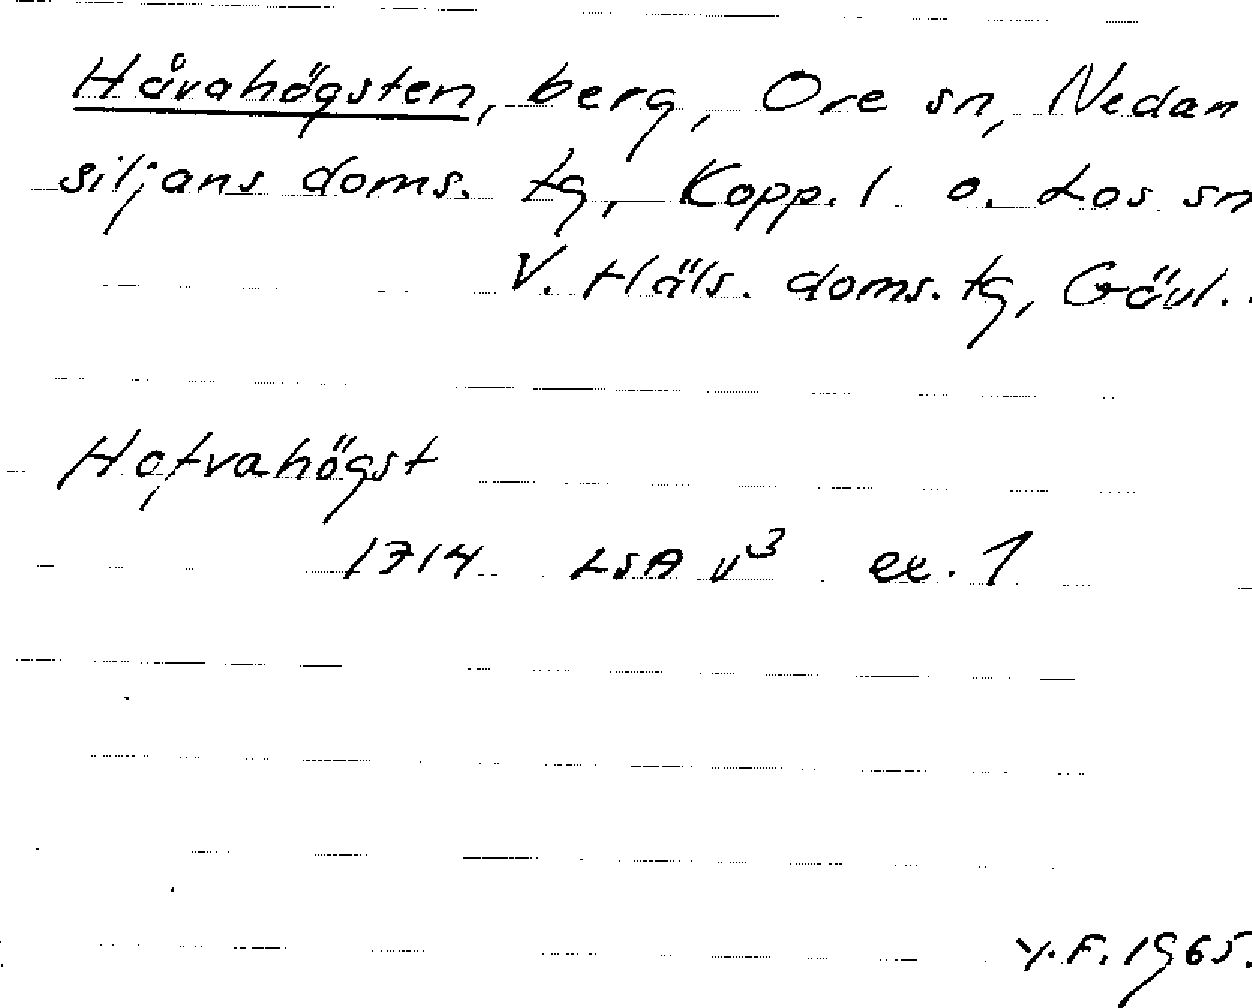 Håvahögsten, berg, Ore sn, Nedan
siljans doms. tg, Kopp. l o. Los sn
V. Häls. doms. tg, Gävl.
Hofvahögst
1714 LSA v³ ex. 1
Y.F. 1965.